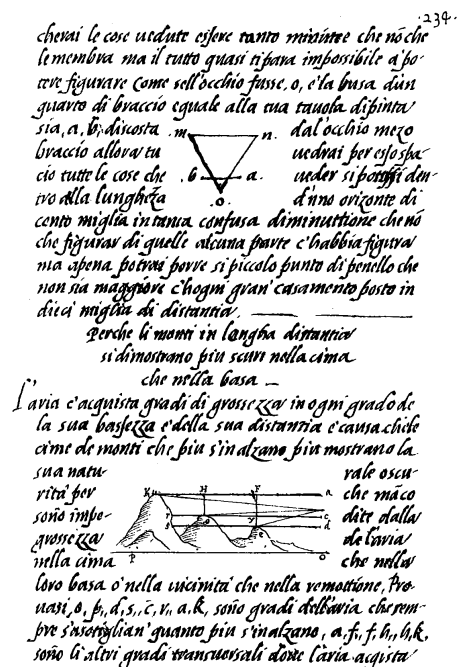 .234.
cherai le cose uedute essere tanto minutte che nõ che
le membra ma il tutto quasi ti para impossibile à po-
tere figurare come se ll'occhio fusse, o, e la busa d'un
quarto di braccio equale alla tua tauola dipinta
sia, a, b, discosta .m n. dal'occhio mezo
braccio allora tu uedrai per esso spa-
cio tutte le cose che .b a. ueder si den-
tro alla lungheza o. d'uno orizonte di
cento miglia in tanta confusa diminuttione che nõ
che figurar di quelle alcuna parte c'habbia figura
ma apena potrai porre si piccolo punto di penello che
non sia maggiore c'hogni gran' casamento posto in
dieci miglia di distantia.
Perche li monti in longha distantia
si dimostrano piu scuri nella cima
che nella basa
L'aria c'acquista gradi di grossezza in ogni grado de
la sua bassezza e' della sua distantia e' causa che le
cime de monti che piu s'inalzano piu mostrano la
sua natu- rale oscu-
rita' per K H F a che mãco
sono impe- c dite dalla
grossezza d de l'aria
nella cima P O che nella
loro basa o' nella uicinita' che nella remottione, Pro-
uasi, o, p, d, s, c, r, a. K, sono gradi dell'aria che sem-
pre s'asotiglian' quanto piu s'inalzano, a, f, f, h, h, k,
sono li altri gradi transuersali doue l'aria acqista